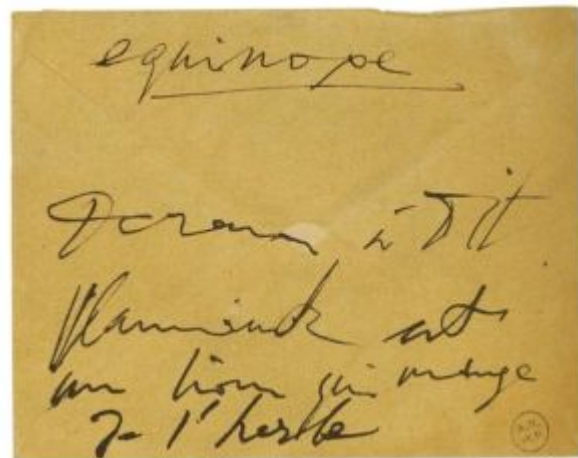 equinope
Derain à Dit
Vlaminck est
un lion qui mange
de l'herbe